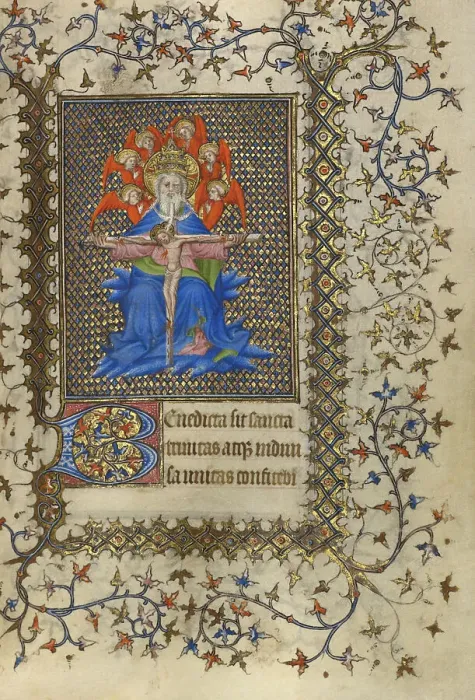 Benedicta sit sancta
trinitas atqꝫ indiui
sa unitas confitebi